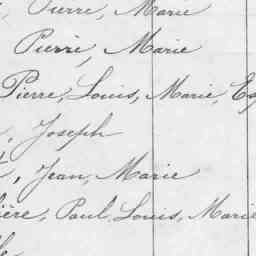 , Pierre, Marie
Pierre, Marie
Pierre, Louis, Marie,
, Joseph
, Jean, Marie
ière, Paul, Louis, Marie